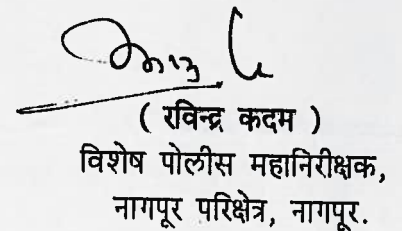 ( रविन्द्र कदम )
विशेष पोलीस महानिरीक्षक,
नागपूर परिक्षेत्र, नागपूर.